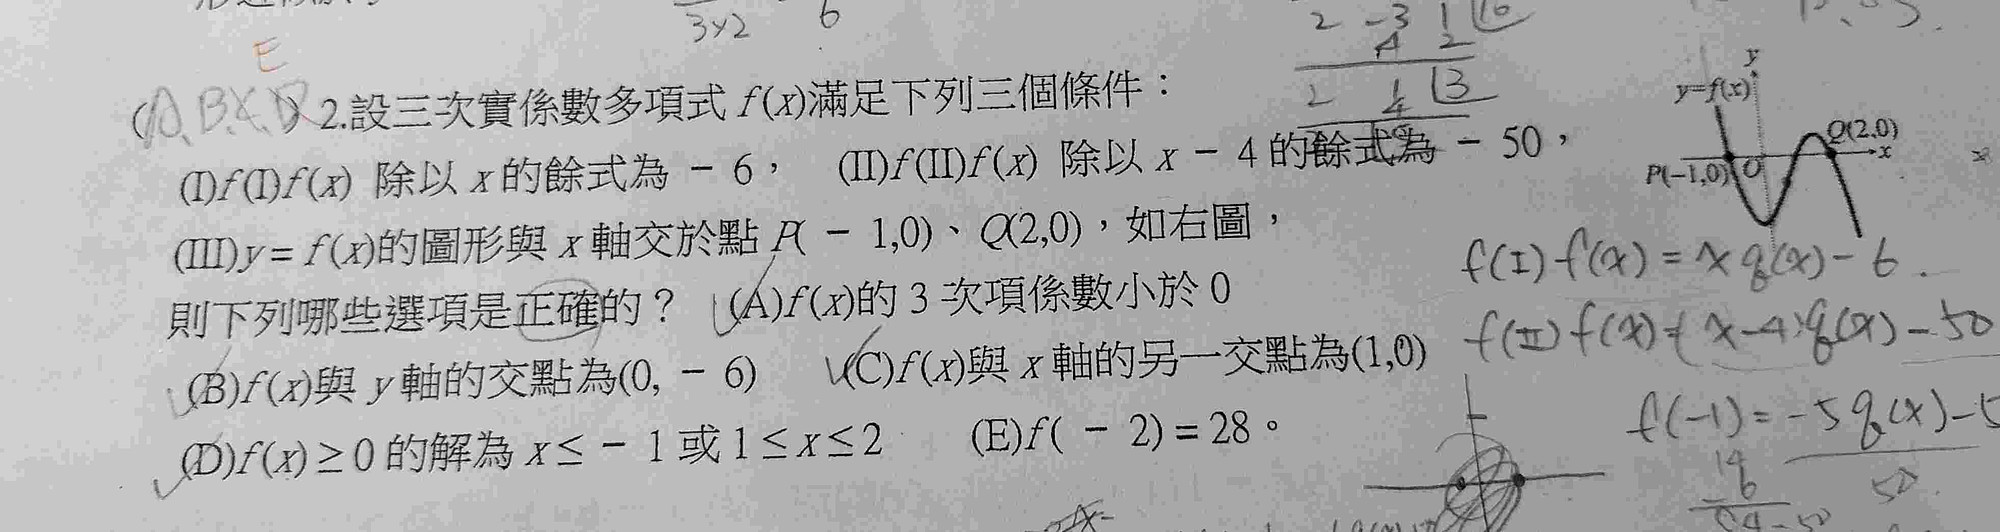 3×2
6
2 -3 1
4 2
2 1 3
E
(A、B、C、D) 2.設三次實係數多項式 f(x)滿足下列三個條件：
(I)f(I)f(x) 除以 x 的餘式為 － 6， (II)f(II)f(x) 除以 x － 4 的餘式為 － 50，
(III)y = f(x)的圖形與 x 軸交於點 P( － 1,0)、Q(2,0)，如右圖，
則下列哪些選項是正確的？ (A)f(x)的 3 次項係數小於 0
(B)f(x)與 y 軸的交點為(0, － 6) (C)f(x)與 x 軸的另一交點為(1,0)
(D)f(x) ≥ 0 的解為 x ≤ － 1 或 1 ≤ x ≤ 2 (E)f( － 2) = 28。
y
y=f(x)
Q(2,0)
x
P(-1,0)
O
f(I) f(x) = x q(x) - 6
f(II) f(x) = (x-4) q(x) - 50
f(-1) = -5 q(x) - 5
50